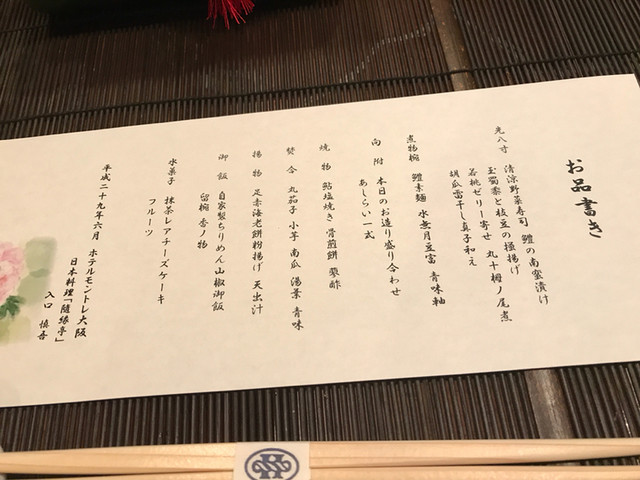 お品書き
先八寸 清涼野菜寿司 鱧の南蛮漬け
玉蜀黍と枝豆の掻揚げ
若桃ゼリー寄せ 丸十梔ノ尾煮
胡瓜雷干し真子和え
煮物椀 鱧素麺 水無月豆富 青味 軸
向附 本日のお造り盛り合わせ
あしらい一式
焼物 鮎塩焼き 骨煎餅 蓼酢
焚合 丸茄子 小芋 南瓜 湯葉 青味
揚物 足赤海老餅粉揚げ 天出汁
御飯 自家製ちりめん山椒御飯
留椀 香の物
水菓子 抹茶レアチーズケーキ
フルーツ
平成二十九年六月 ホテルモントレ大阪
日本料理「随縁亭」
入口